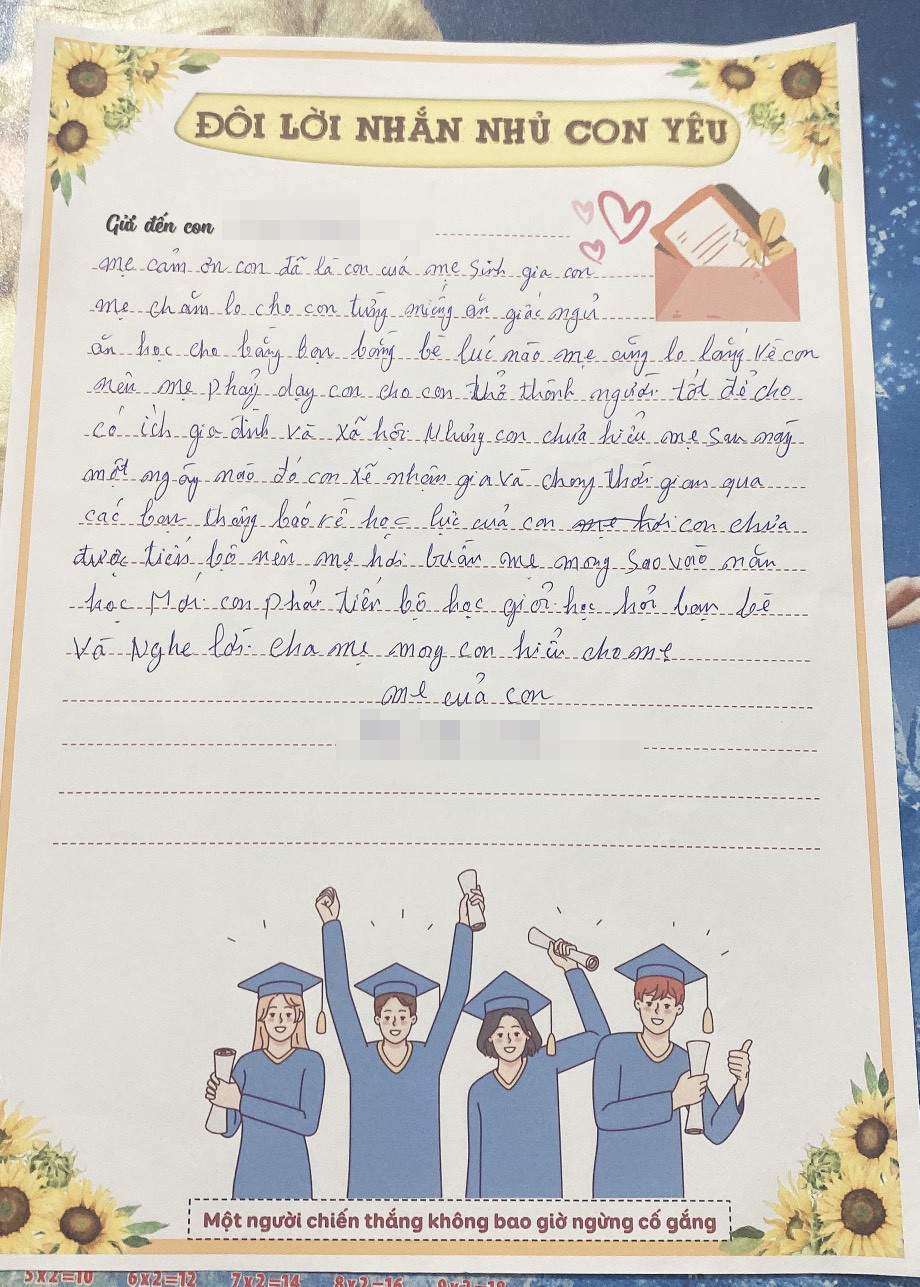 ĐÔI LỜI NHẮN NHỦ CON YÊU
Gửi đến con
mẹ cảm ơn con đã là con cuả mẹ sinh gia con
mẹ chăm lo cho con từng miếng ăn giấc ngủ
ăn học cho bằng bạn bằng bè lúc nào mẹ cũng lo lắng về con
nên mẹ phaỷ dạy con cho con thở thành người tốt để cho
có ích gia đình và xã hội Nhưng con chưa hiểu mẹ sau naỳ
một ngaỳ naò đó con xẽ nhận gia và chong thời gian qua
các bạn thông baó về học lực cuả con mẹ hơi con chưa
được tiến bộ nên mẹ hơi buần mẹ mong sao vaò năn
học Mới con phải tiến bộ học giỏi học hỏi bạn bè
Và Nghe lời cha mẹ mong con hiểu cho mẹ
mẹ cuả con
Một người chiến thắng không bao giờ ngừng cố gắng
5x2=10 6x2=12 7x2=14 8x2=16 9x2=18